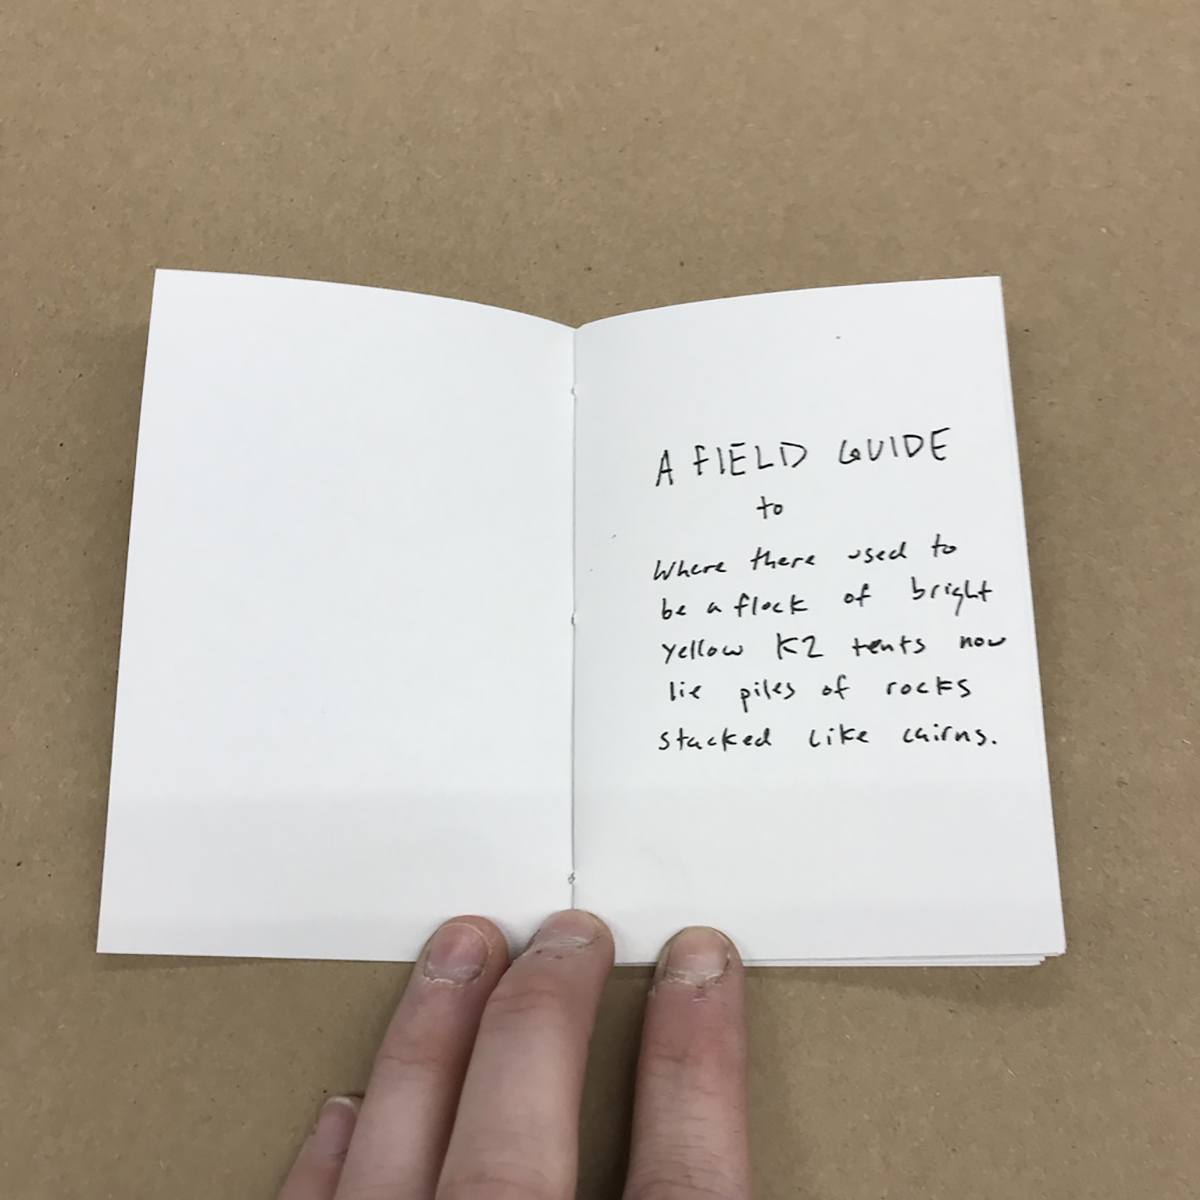 A FIELD GUIDE
to
Where there used to
be a flock of bright
yellow K2 tents now
lie piles of rocks
stacked like cairns.